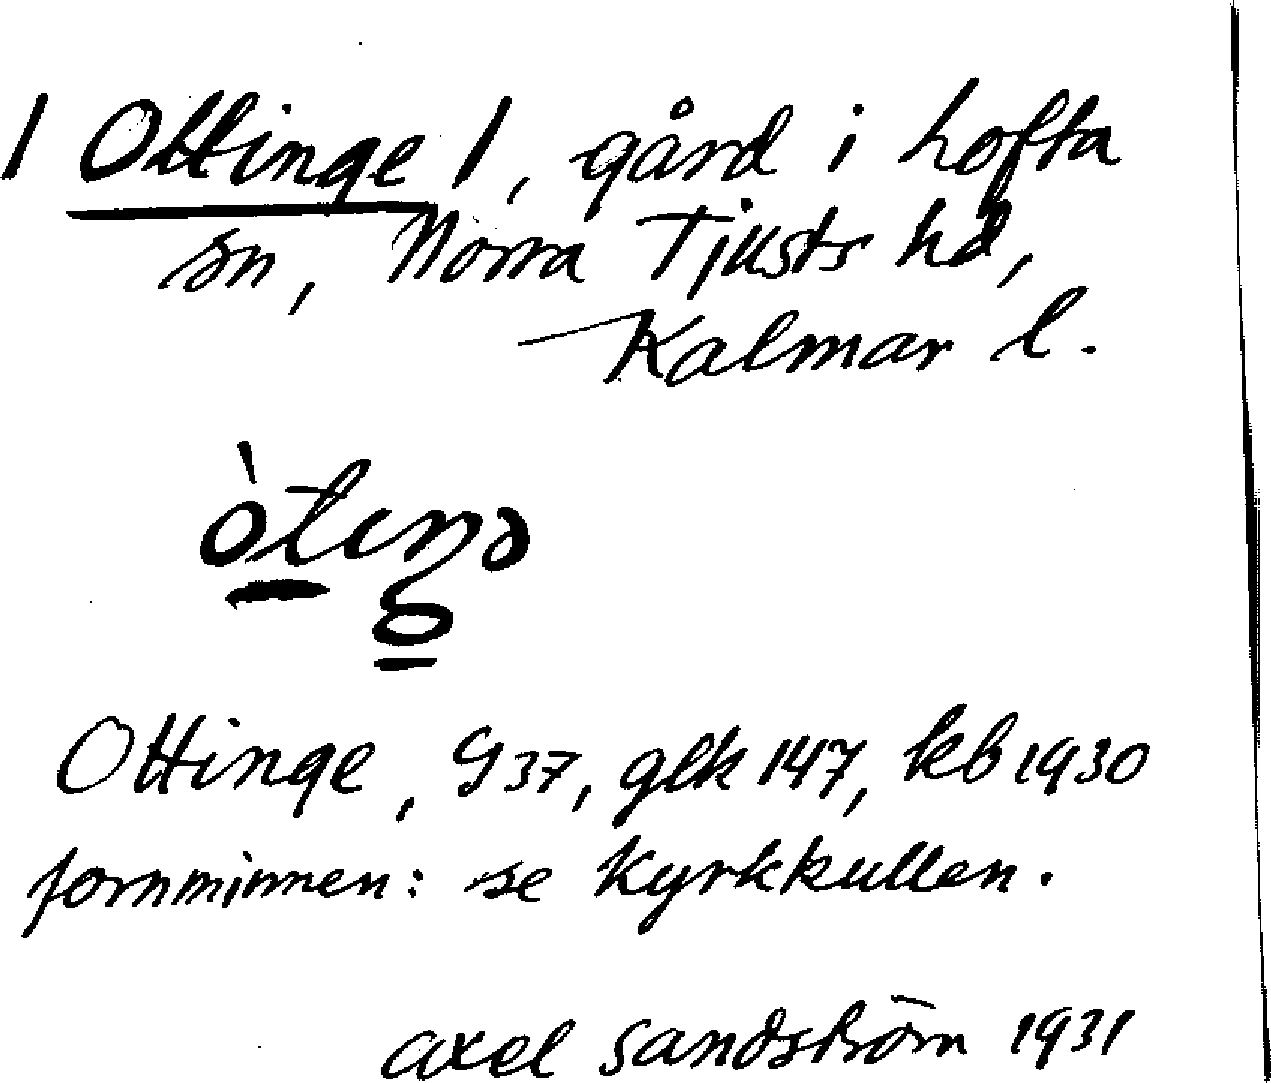 / Ottinge /, gård i Lofta
sn, Norra Tjusts hd,
Kalmar l.
òtıŋə
Ottinge, G 37, glk 147, kb 1930
fornminnen: se Kyrkkullen.
Axel Sandström 1931